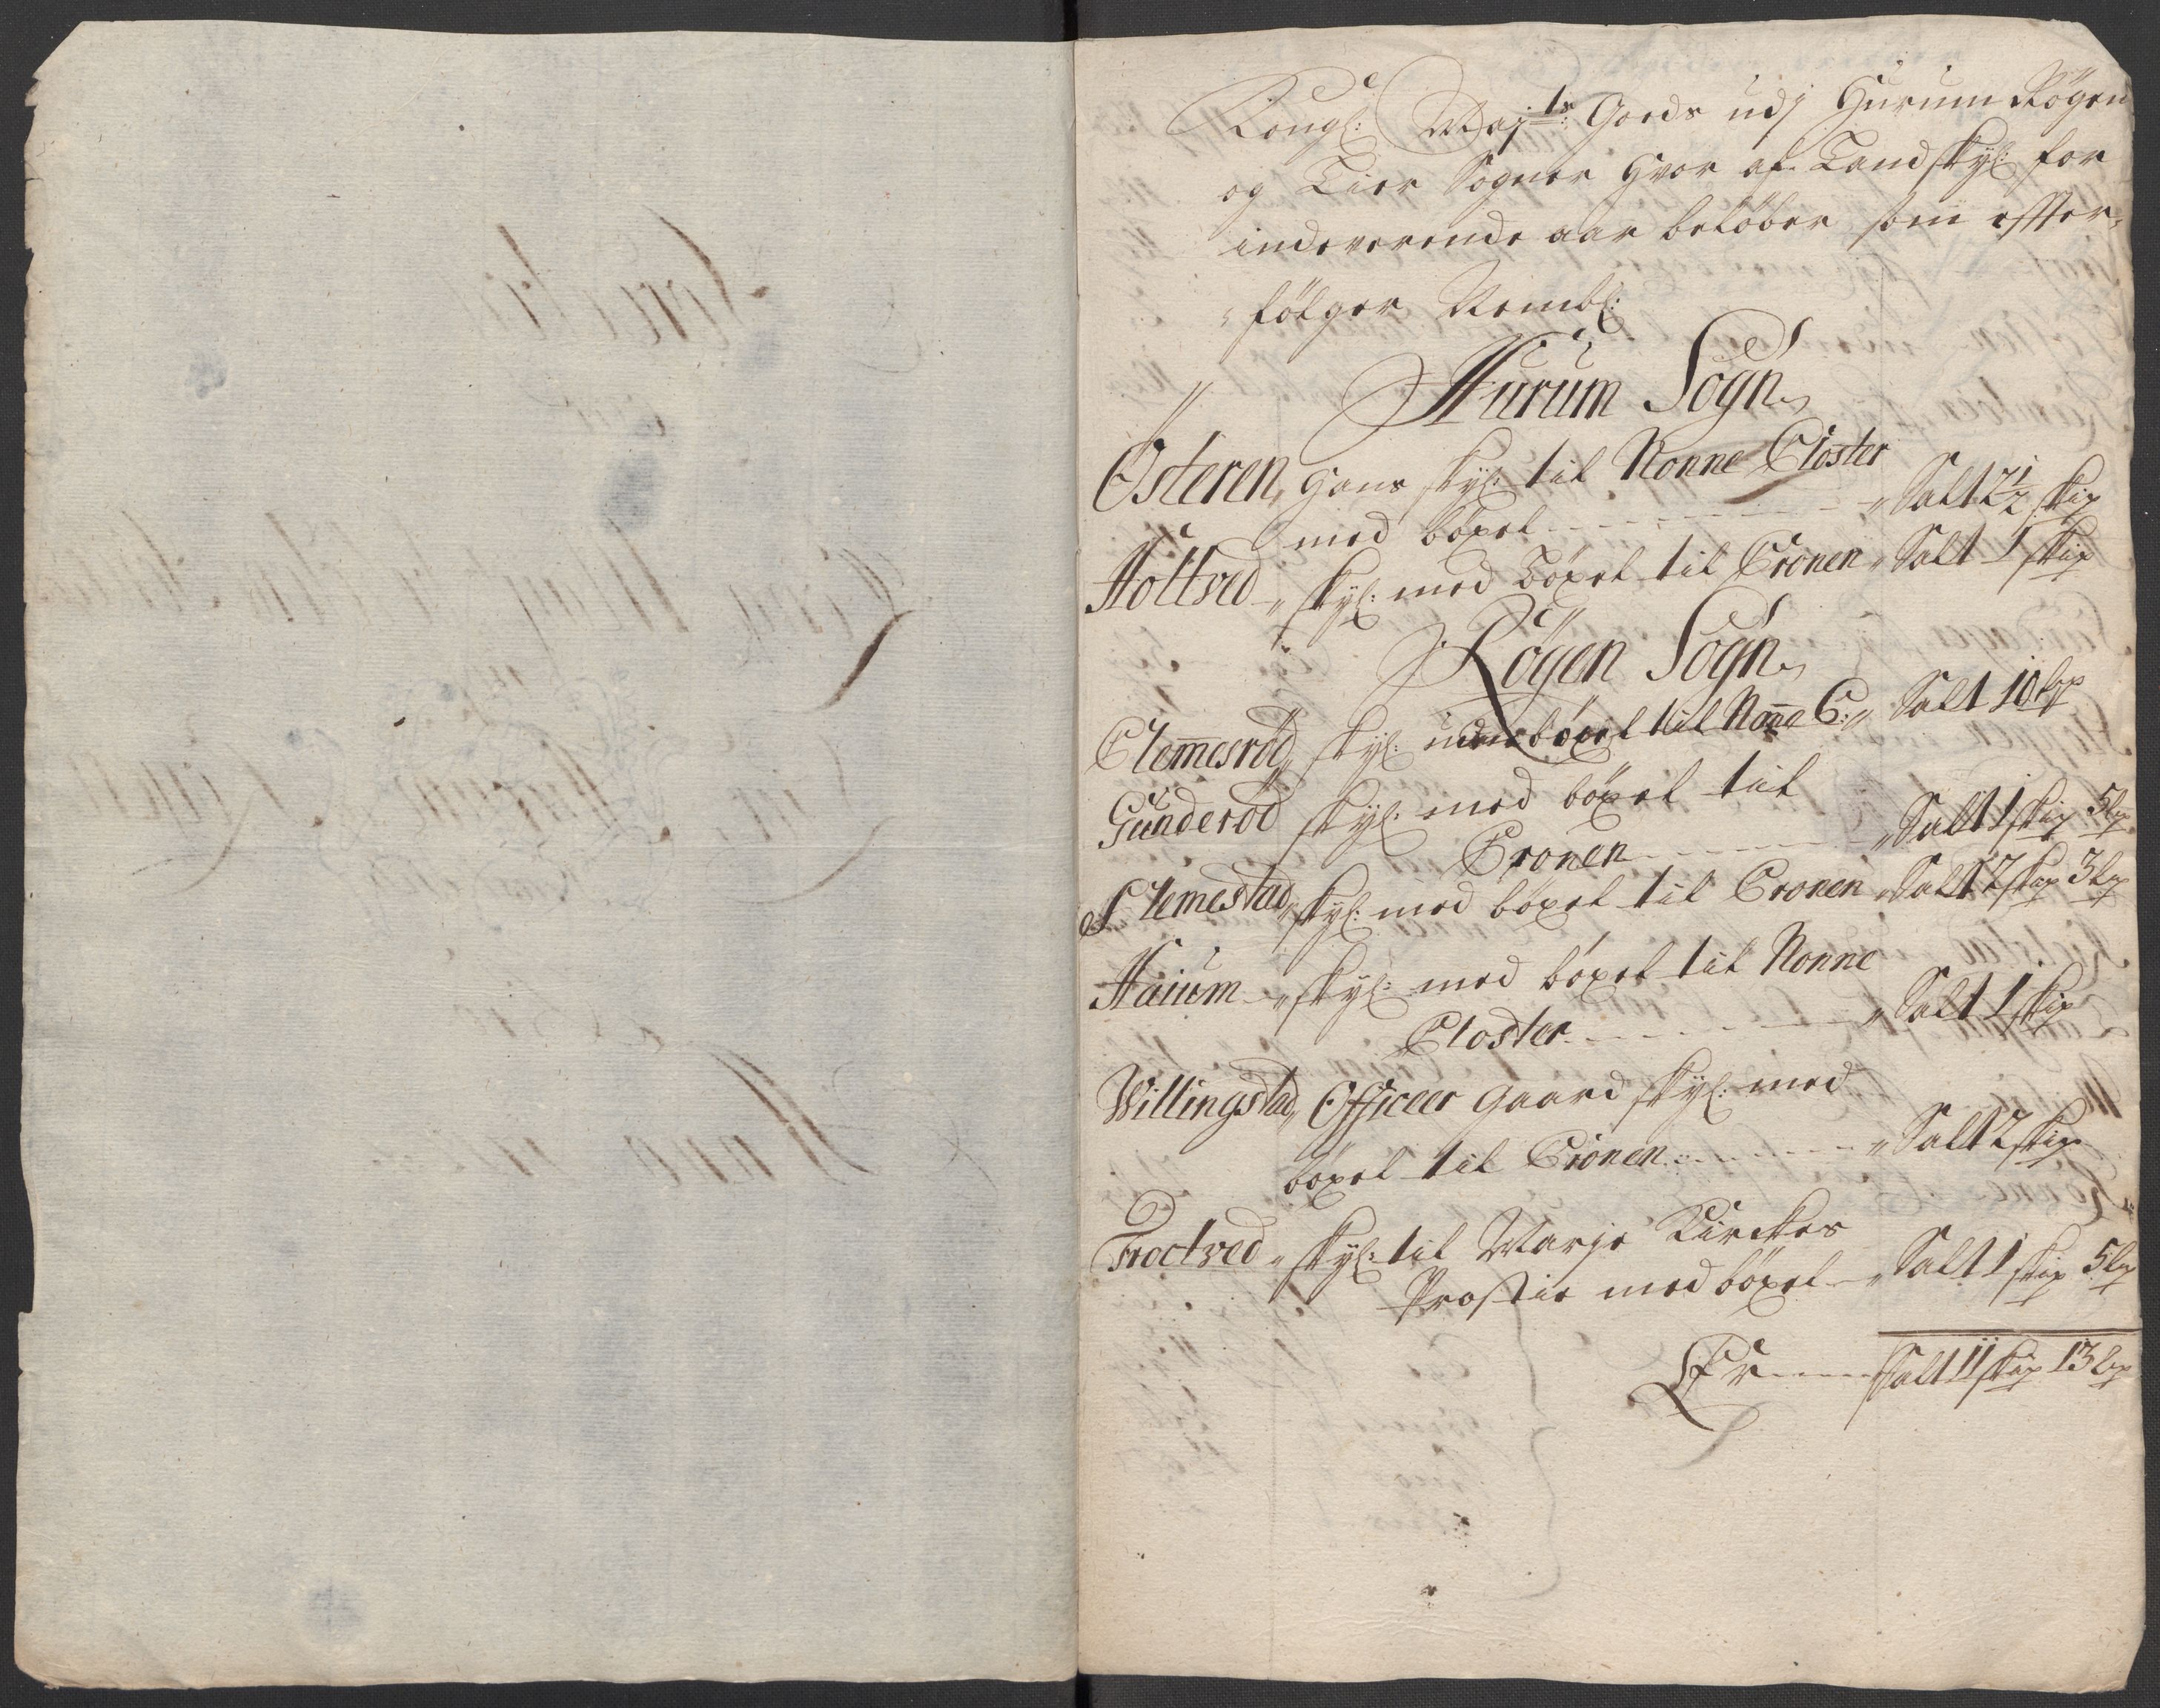 Kongl: Maj:ts Gods udj Hurum Røgen
og Lier Sogner hvor af Landskyl: for
indeverende aar beløber som effter-
følger Nembl:
Hurum Sogn
Østeren, hans skyl: til Nonne Closter
med böxel - - - Salt 2½ skip
Holtved - skyl: med böxel til Cronen Salt 1 skip
Røyen Sogn
Clemmesröd, skyl: uden böxel til Nonne C: Salt 10 lyp
Gunderöd skyl: med böxel til
Cronen - - - Salt 1 skip 5 lyp
Slemestad, skyl: med böxel til Cronen Salt 2 skip 3 lyp
Haium - skyl: med böxel til Nonne
Closter - - - Salt 1 skip
Willingstad, Officeer gaard skyl: med
böxel til Cronen - - - Salt 2 skip
Froctved - skyl: til Marje Kirckes
Prostie med böxel - Salt 1 skip 5 lyp
Er - - - Salt 11 skip 13 lyp